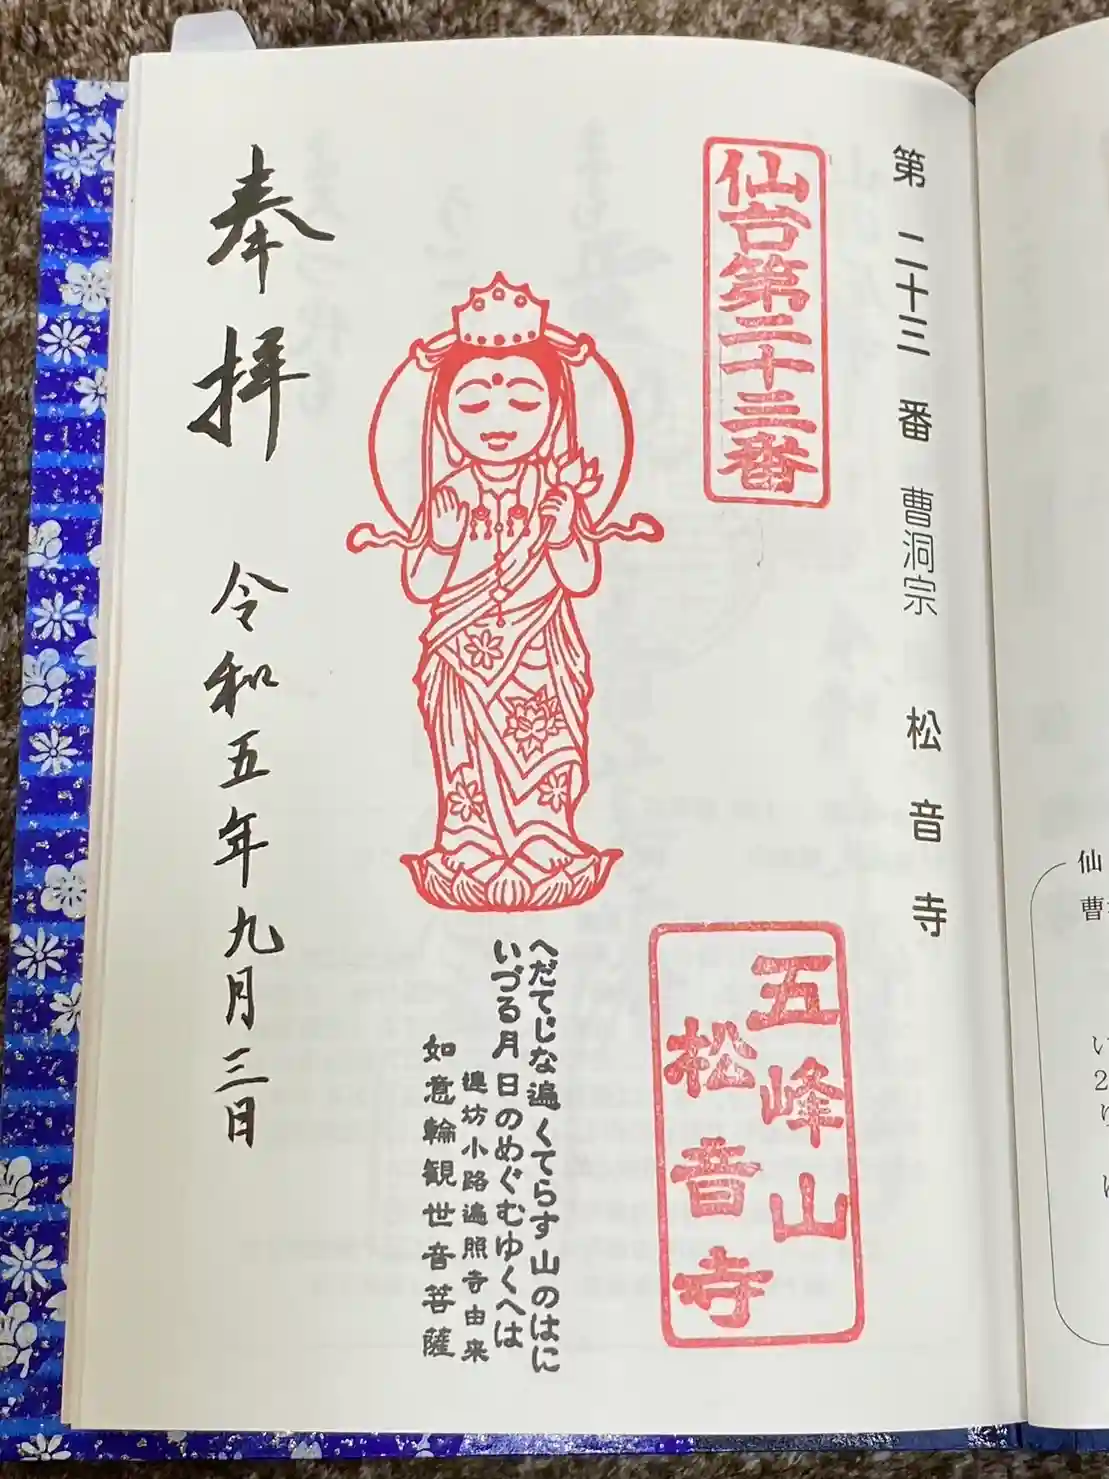 第二十三番 曹洞宗 松音寺
仙台第二十三番
五峰山
松音寺
へだてじな遍くてらす山のはに
いづる月日のめぐむゆくへは
連坊小路遍照寺由来
如意輪観世音菩薩
奉拝 令和五年九月三日
仙
曹